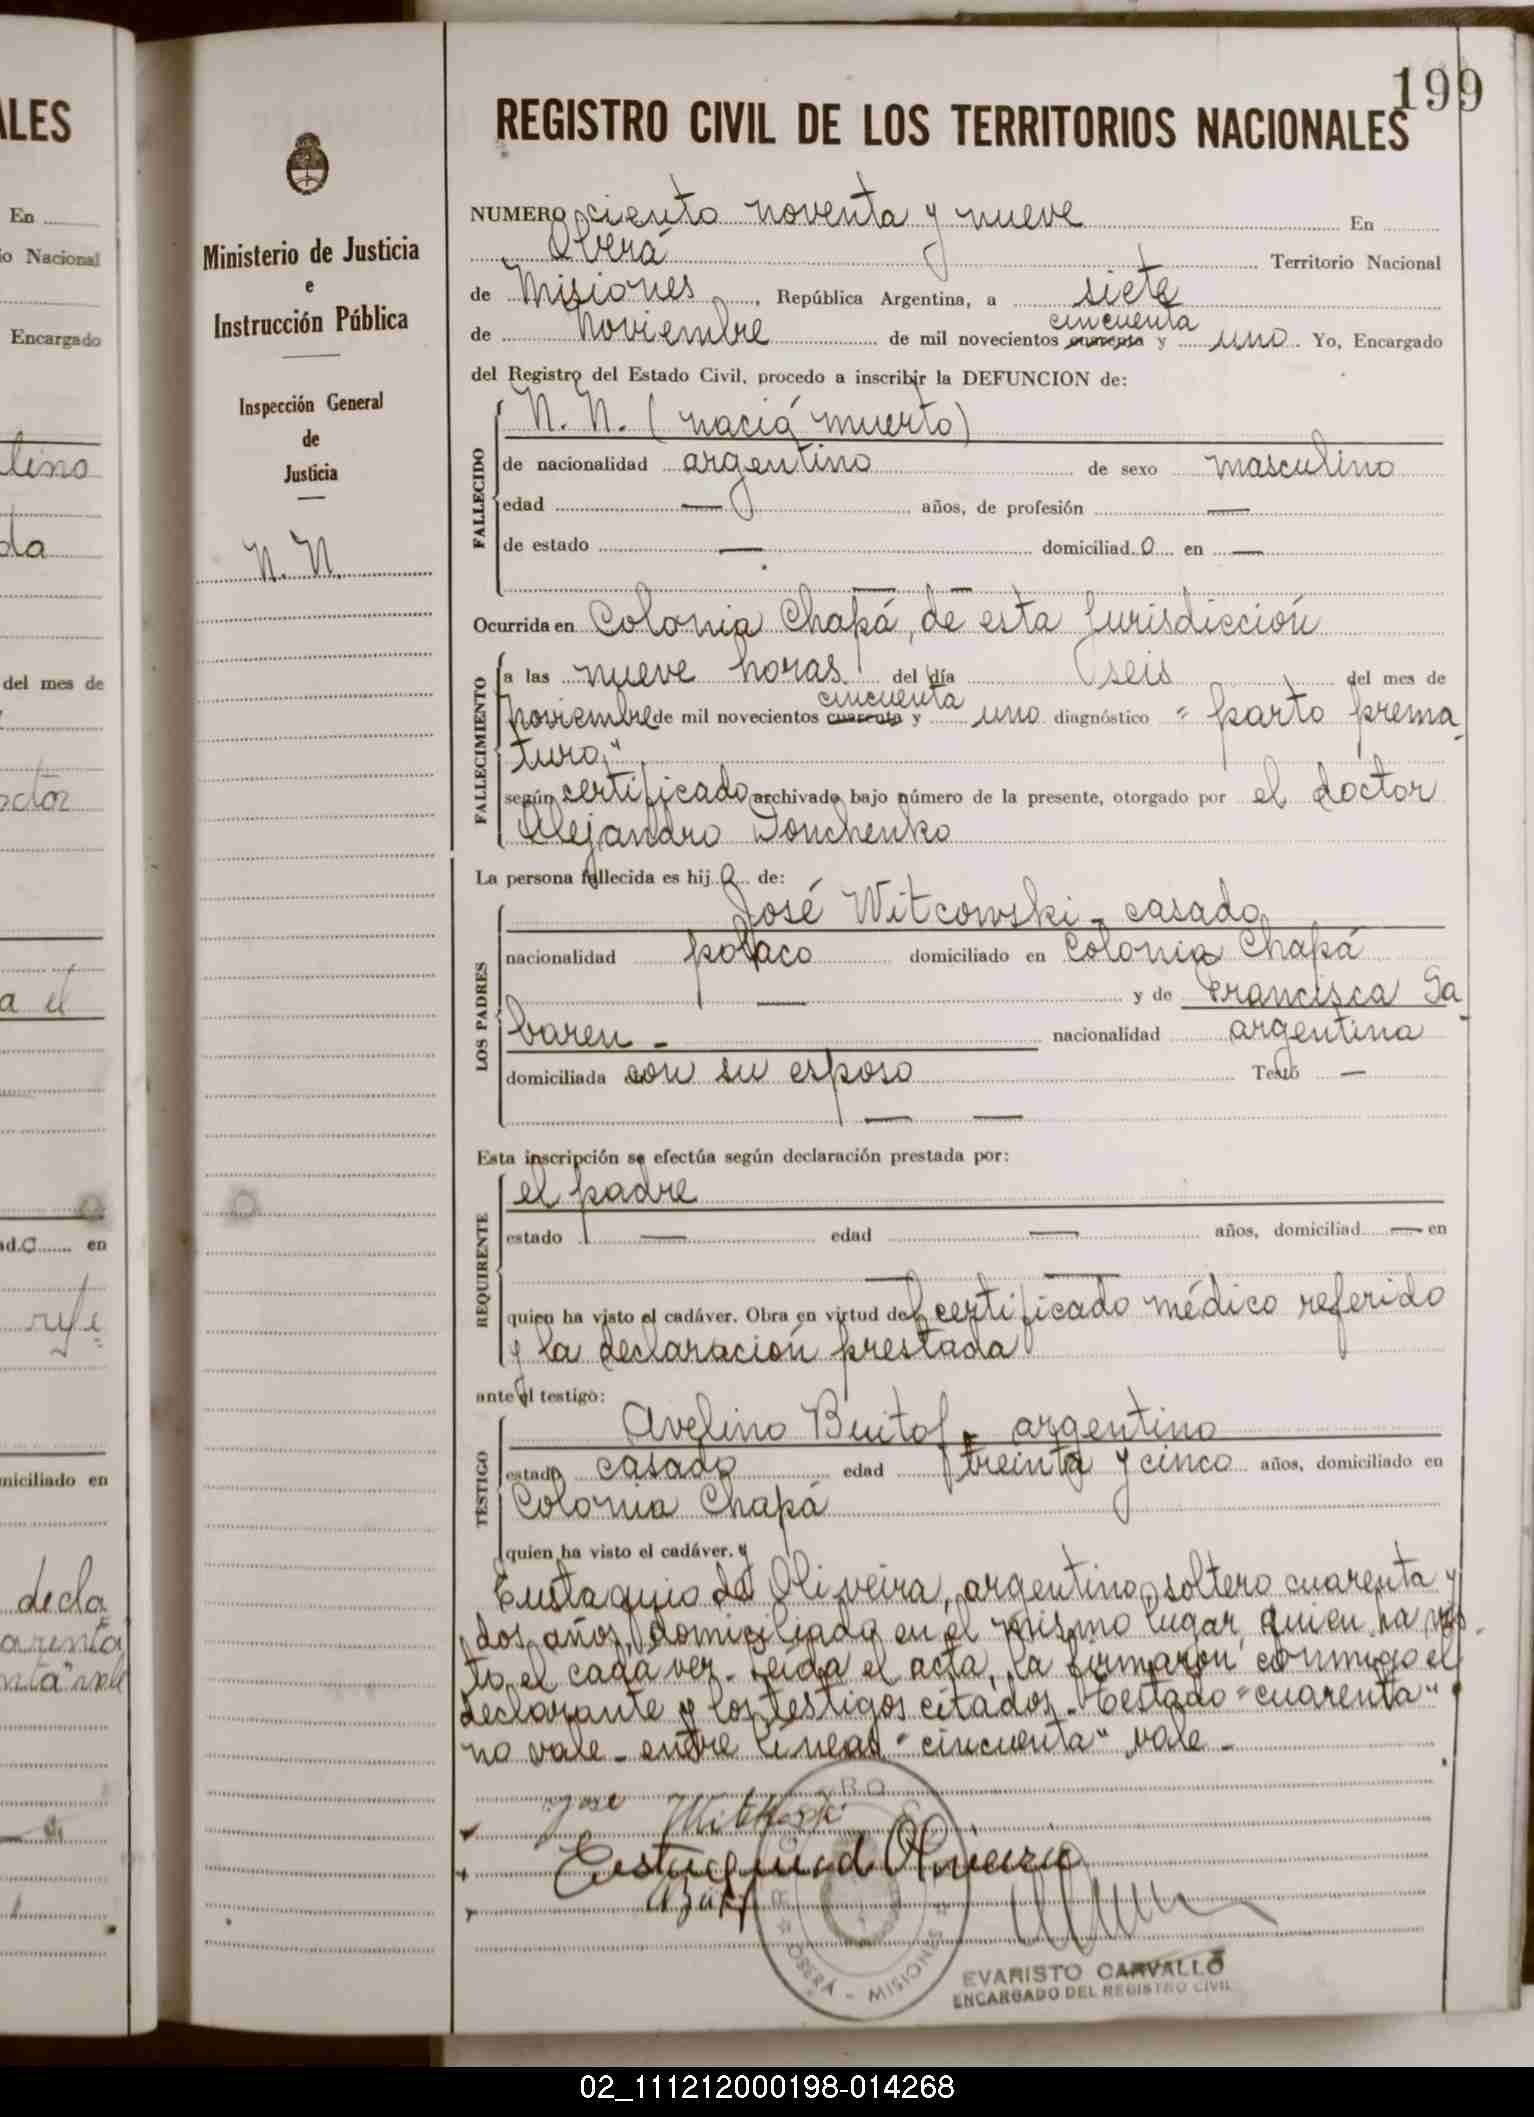 199
REGISTRO CIVIL DE LOS TERRITORIOS NACIONALES
NUMERO ciento noventa y nueve En
Oberá Territorio Nacional
de Misiones, República Argentina, a siete
de noviembre de mil novecientos cincuenta cuarenta y uno. Yo, Encargado
del Registro del Estado Civil, procedo a inscribir la DEFUNCION de:
FALLECIDO
N. N. (nació muerto)
de nacionalidad argentino de sexo masculino
edad — años, de profesión —
de estado — domiciliado en —
— —
Ocurrida en Colonia Chapá, de esta Jurisdicción
FALLECIMIENTO
a las nueve horas del día seis del mes de
noviembre de mil novecientos cincuenta cuarenta y uno diagnóstico "parto prema
turo"
según certificado archivado bajo número de la presente, otorgado por el doctor
Alejandro Donchenko
La persona fallecida es hijo de:
LOS PADRES
José Witcowski - casado
nacionalidad polaco domiciliado en Colonia Chapá
— y de Francisca Ga
baren - nacionalidad argentina
domiciliada con su esposo Testó —
— —
Esta inscripción se efectúa según declaración prestada por:
REQUIRENTE
el padre
estado — edad — años, domiciliad — en
— —
quien ha visto el cadáver. Obra en virtud del certificado médico referido
y la declaración prestada
ante el testigo:
TESTIGO
Avelino Buitof - argentino
estado casado edad treinta y cinco años, domiciliado en
Colonia Chapá
quien ha visto el cadáver. y
Eustaquio de Oliveira, argentino, soltero cuarenta y
dos años, domiciliado en el mismo lugar, quien ha vis-
to el cadáver. Leída el acta, la firmaron conmigo el
declarante y los testigos citados - Testado "cuarenta"
no vale - entre líneas "cincuenta" vale -
Jose Witkoski
Eustaquio d Oliveira
OBERÁ - MISIONES
EVARISTO CARVALLO
ENCARGADO DEL REGISTRO CIVIL
Ministerio de Justicia
e
Instrucción Pública
Inspección General
de
Justicia
N. N.
ALES
En
io Nacional
Encargado
lino
da
del mes de
octor
a el
ad.o en
refe
miciliado en
decla
arenta
02_111212000198-014268